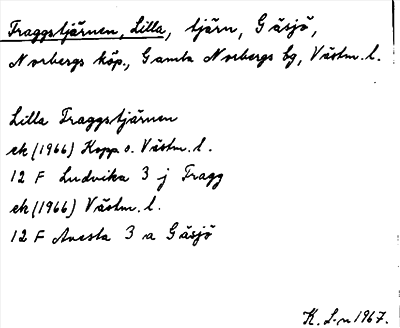 Traggstjärnen, Lilla, tjärn, Gäsjö,
Norbergs köp., Gamla Norbergs bg, Västm. l.
Lilla Traggstjärnen
ek (1966) Kopp o. Västm. l.
12 F Ludvika 3 j Tragg
ek (1966) Västm. l.
12 F Avesta 3 a Gäsjö
K. L-n 1967.